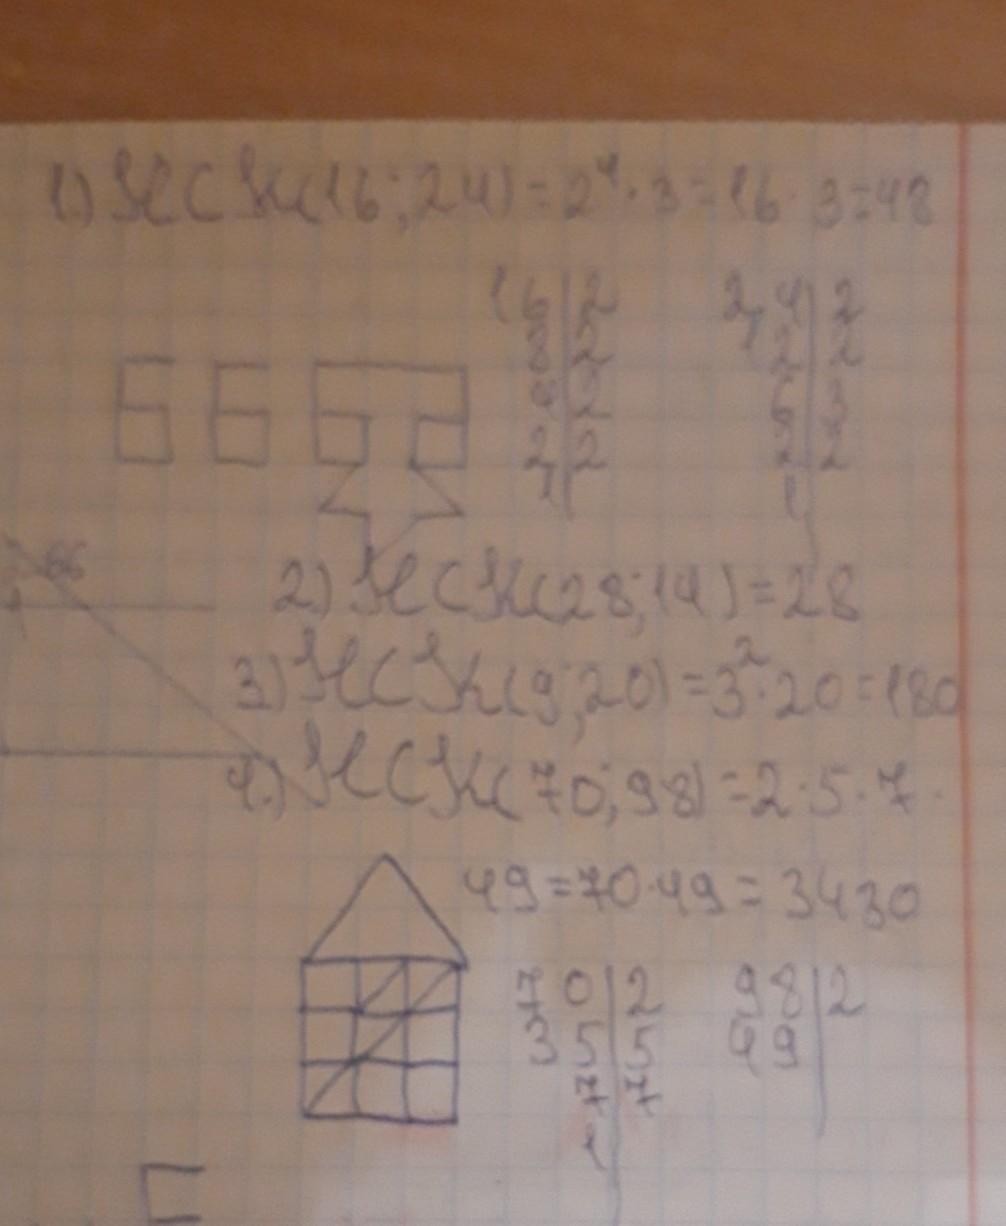 1) НСК(16; 24) = 2⁴ · 3 = 16 · 3 = 48
16|2 24|2
8|2 12|2
4|2 6|3
2|2 2|2
1| 1|
66
2) НСК(28; 14) = 28
3) НСК(9; 20) = 3² · 20 = 180
4) НСК(70; 98) = 2 · 5 · 7 ·
49 = 70 · 49 = 3430
70|2 98|2
35|5 49|
7|7
1|